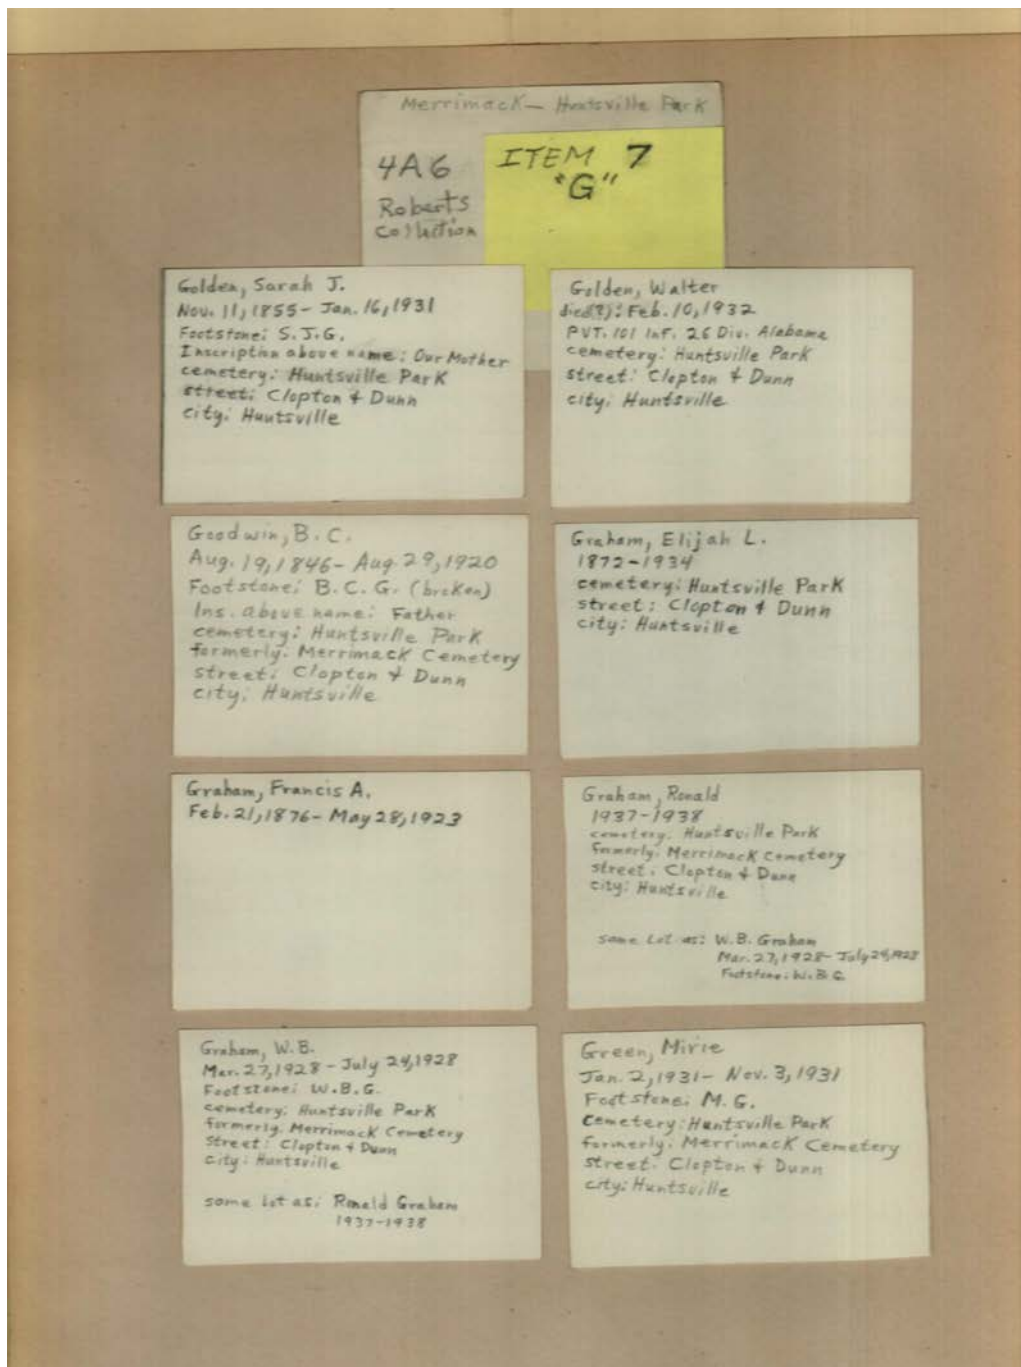 Merrimack - Huntsville Park
4A6
Roberts
Collection
ITEM 7
"G"
Golden, Sarah J.
Nov. 11, 1855 - Jan. 16, 1931
Footstone: S.J.G.
Inscription above name: Our Mother
cemetery: Huntsville Park
street: Clopton + Dunn
city: Huntsville
Golden, Walter
died(?): Feb. 10, 1932
PVT. 101 Inf. 26 Div. Alabama
cemetery: Huntsville Park
street: Clopton + Dunn
city: Huntsville
Goodwin, B. C.
Aug. 19, 1846 - Aug 29, 1920
Footstone: B. C. G. (broken)
Ins. above name: Father
cemetery: Huntsville Park
formerly: Merrimack Cemetery
street: Clopton + Dunn
city: Huntsville
Graham, Elijah L.
1872-1934
cemetery: Huntsville Park
street: Clopton + Dunn
city: Huntsville
Graham, Francis A.
Feb. 21, 1876 - May 28, 1923
Graham, Ronald
1937-1938
cemetery: Huntsville Park
formerly: Merrimack Cemetery
street: Clopton + Dunn
city: Huntsville
same lot as: W.B. Graham
Mar. 27, 1928 - July 24, 1928
Footstone: W.B.G.
Graham, W.B.
Mar. 27, 1928 - July 24, 1928
Footstone: W.B.G.
cemetery: Huntsville Park
formerly: Merrimack Cemetery
street: Clopton + Dunn
city: Huntsville
same lot as: Ronald Graham
1937-1938
Green, Mirie
Jan. 2, 1931 - Nov. 3, 1931
Footstone: M. G.
cemetery: Huntsville Park
formerly: Merrimack Cemetery
street: Clopton + Dunn
city: Huntsville